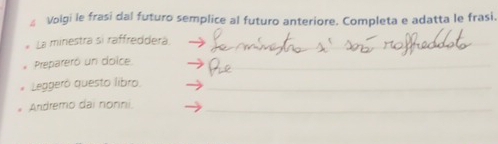 4 Volgi le frasi dal futuro semplice al futuro anteriore. Completa e adatta le frasi.
• La minestra si raffredderà. → La minestra si sarà raffreddata
• Preparerò un dolce. → Pre
• Leggerò questo libro. →
• Andremo dai nonni. →